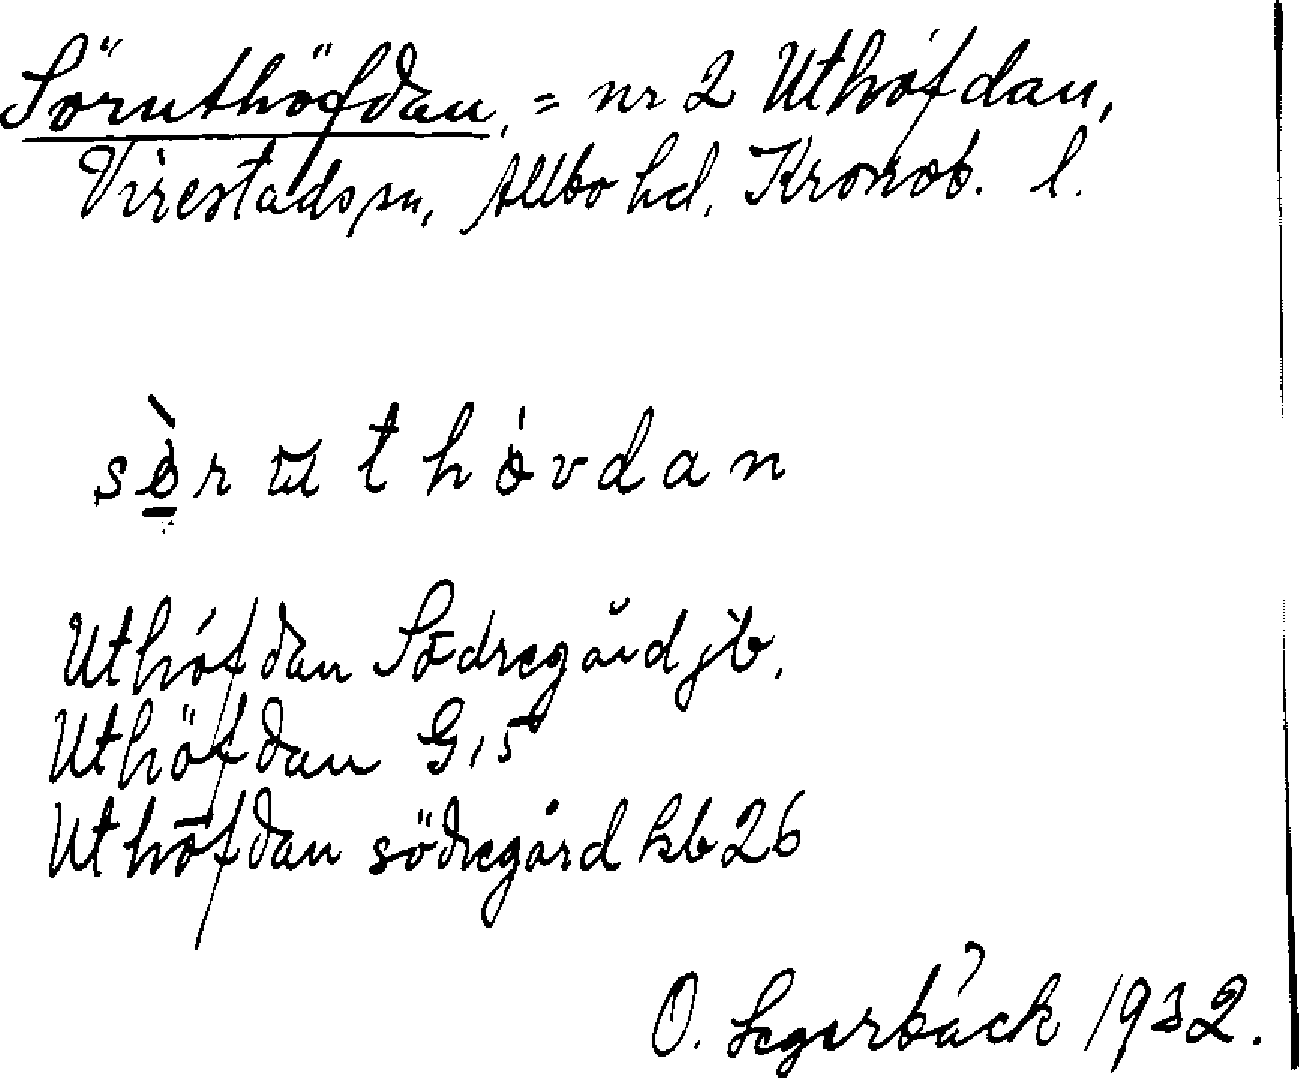 Söruthöfdan, = nr 2 Uthöfdan,
Virestads sn, Allbo hd, Kronob. l.
sø̀r ut hóvdan
Uthöfdan Södregård jb.
Uthöfdan G, 5
Uthöfdan södregård kb 26
O. Segerbäck 1932.